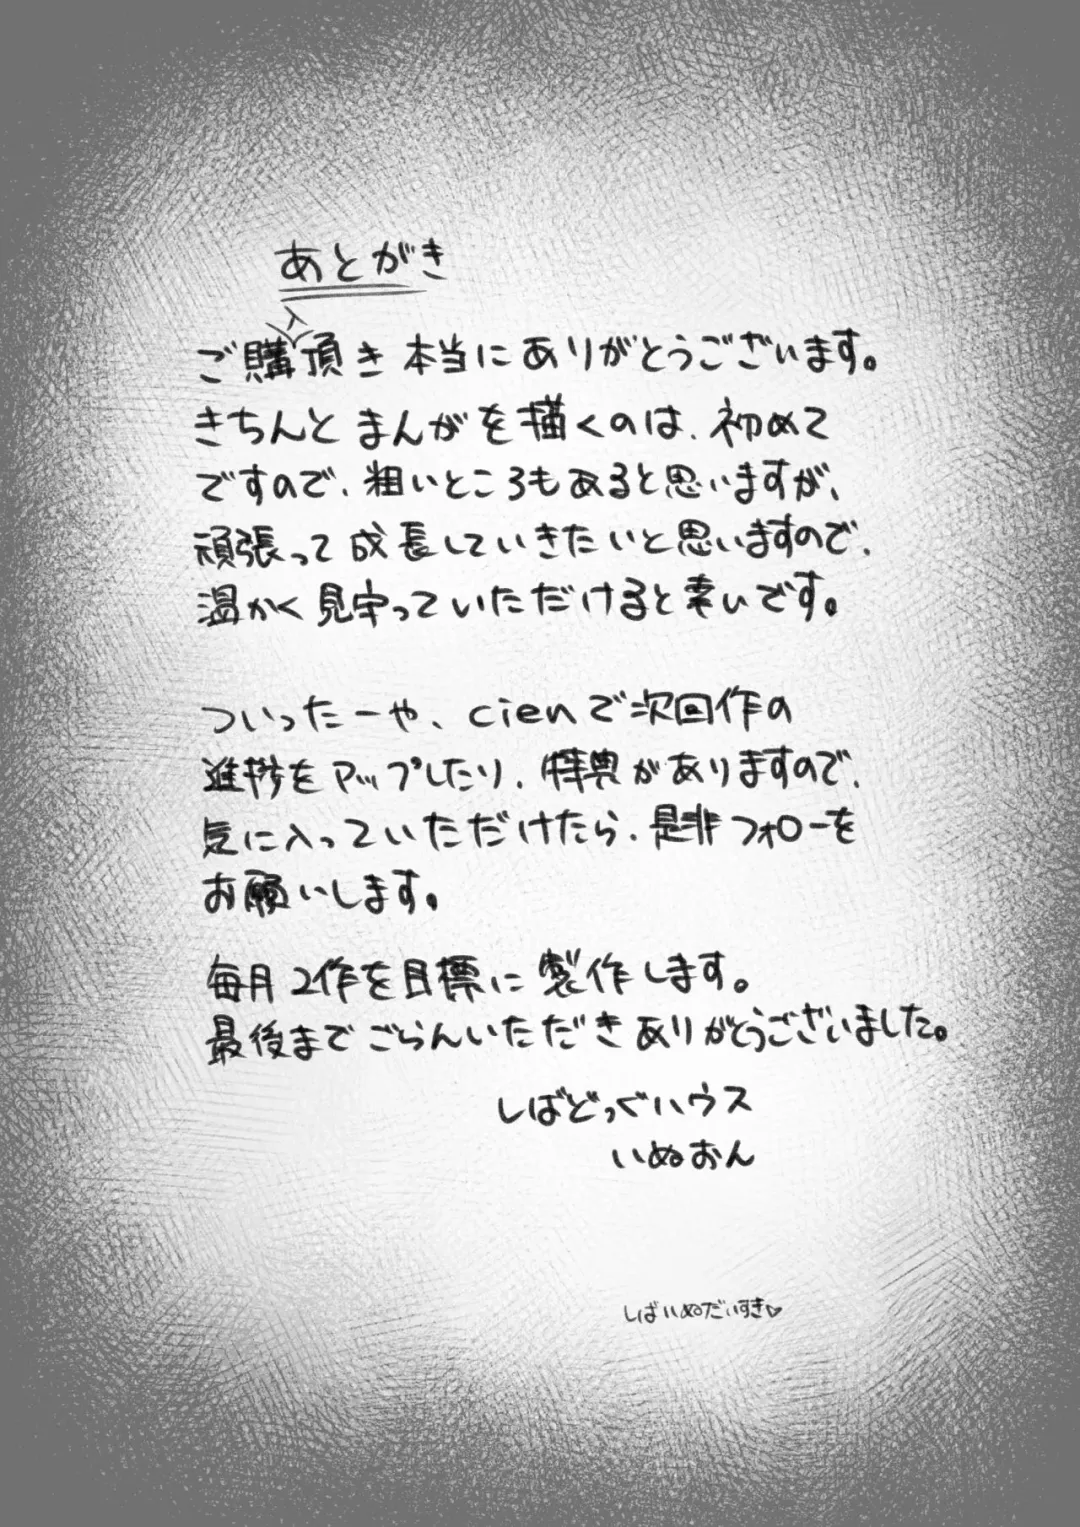 あとがき
ご購入頂き 本当にありがとうございます。
きちんと まんがを描くのは、初めて
ですので、粗いところもあると思いますが、
頑張って 成長していきたいと思いますので、
温かく 見守っていただけると幸いです。
ついったーや、cienで次回作の
進捗を アップしたり、特典がありますので、
気に入っていただけたら、是非 フォローを
お願いします。
毎月 2作を目標に 製作します。
最後まで ごらんいただき ありがとうございました。
しばどっぐハウス
いぬおん
しばいぬだいすき♡